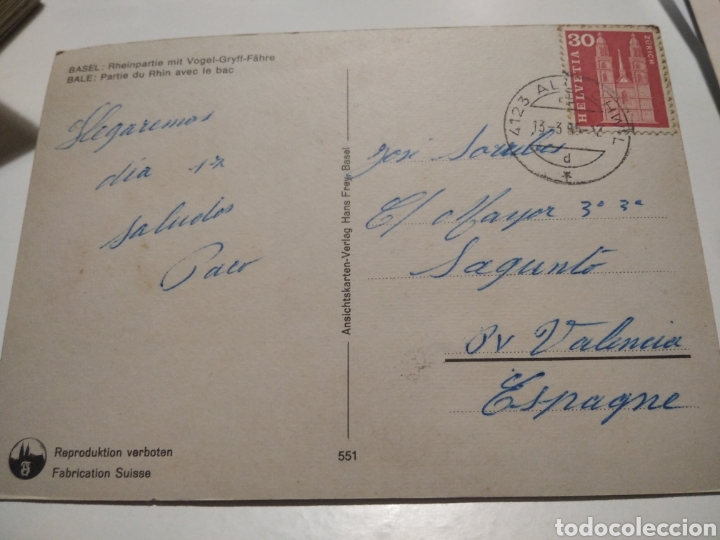 BASEL: Rheinpartie mit Vogel-Gryff-Fähre
BALE: Partie du Rhin avec le bac
Llegaremos
día 17
saludos
Paco
Ansichtskarten-Verlag Hans Frey, Basel
30
HELVETIA
ZÜRICH
4123 AL
13-3
d
José
C/ Mayor 3º 3ª
Sagunto
Pv Valencia
Espagne
Reproduktion verboten
Fabrication Suisse
551
todocoleccion